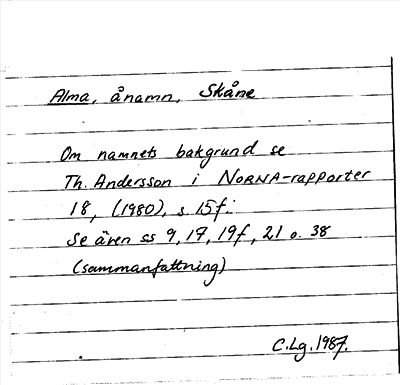 Alma, ånamn, Skåne
Om namnets bakgrund se
Th. Andersson i NORNA-rapporter
18, (1980), s. 15f.
Se även ss 9, 17, 19f, 21 o. 38
(sammanfattning)
C.Lg. 1987.